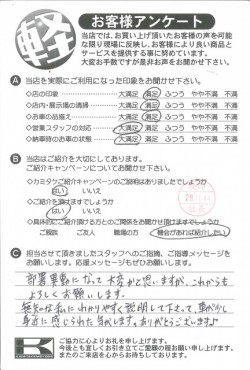 軽
お客様アンケート
当店では、お買い上げ頂いたお客様の声を可能
な限り現場に反映し、お客様により良い商品と
サービスを提供する事に努めています。
大変お手数ですが是非お声をお聞かせ下さい。
A 当店を実際にご利用になった印象をお聞かせ下さい。
◇店の印象 大満足 満足 ふつう やや不満 不満
◇店内・展示場の清掃 大満足 満足 ふつう やや不満 不満
◇お車の品揃え 大満足 満足 ふつう やや不満 不満
◇営業スタッフの対応 大満足 満足 ふつう やや不満 不満
◇納車時のお車の状態 大満足 満足 ふつう やや不満 不満
B 当店はご紹介を大切にしております。
ご紹介キャンペーンについてお聞かせ下さい。
◇カミタケご紹介キャンペーンのご説明はありましたでしょうか
はい いいえ
◇ご紹介を頂けますでしょうか
はい いいえ
◇具体的にご紹介頂ける方とのご関係をお聞かせ頂けますでしょうか
ご親族 ご友人 職場の方 機会があれば紹介したい
C 担当させて頂きましたスタッフへのご指摘、ご指導メッセージを
お願いします。応援メッセージもぜひお願いします。
部署異動になって大変かと思いますが、これからも
よろしくお願いします。
無知な私にわかりやすく説明して下さって、車が少し
身近に感じられた気がします。ありがとうございます♪
K
ご協力に心よりお礼を申し上げます。
今後とも宜しくお引き立てご愛顧の程お願い申し上げます。
またのご来店を心からお待ちしております。